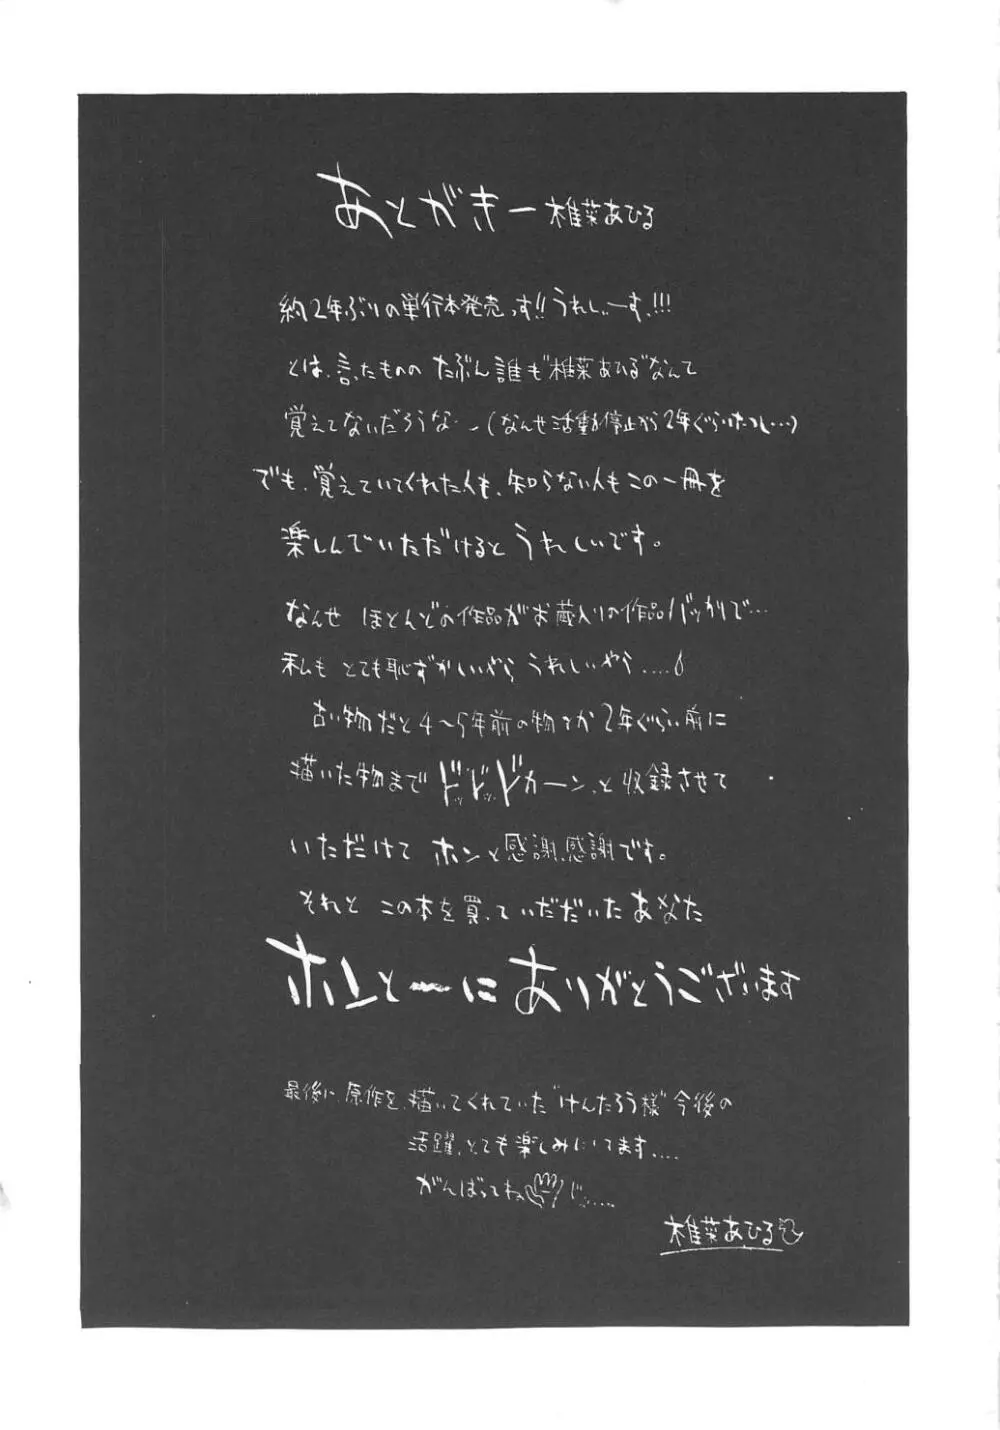 あとがきー椎菜あひる
約2年ぶりの単行本発売っす!!うれしぃーす!!!
とは、言ったものの たぶん誰も"椎菜あひる"なんて
覚えてないだろうな…(なんせ活動停止から2年ぐらいたつし…)
でも、覚えていてくれた人も、知らない人もこの一冊を
楽しんでいただけると うれしいです。
なんせ ほとんどの作品がお蔵入りの作品バッカリで…
私も とても恥ずかしいやら うれしいやら.....
古い物だと4〜5年前の物とか 2年ぐらい前に
描いた物まで ドッドッドカーン、と収録させて
いただけて ホンと感謝、感謝です。
それと この本を買っていだだいた あなた
ホントーに ありがとうございます
最後に、原作を、描いてくれていた"けんたろう様"今後の
活躍、とても楽しみにしてます....
がんばってね
椎菜あひる